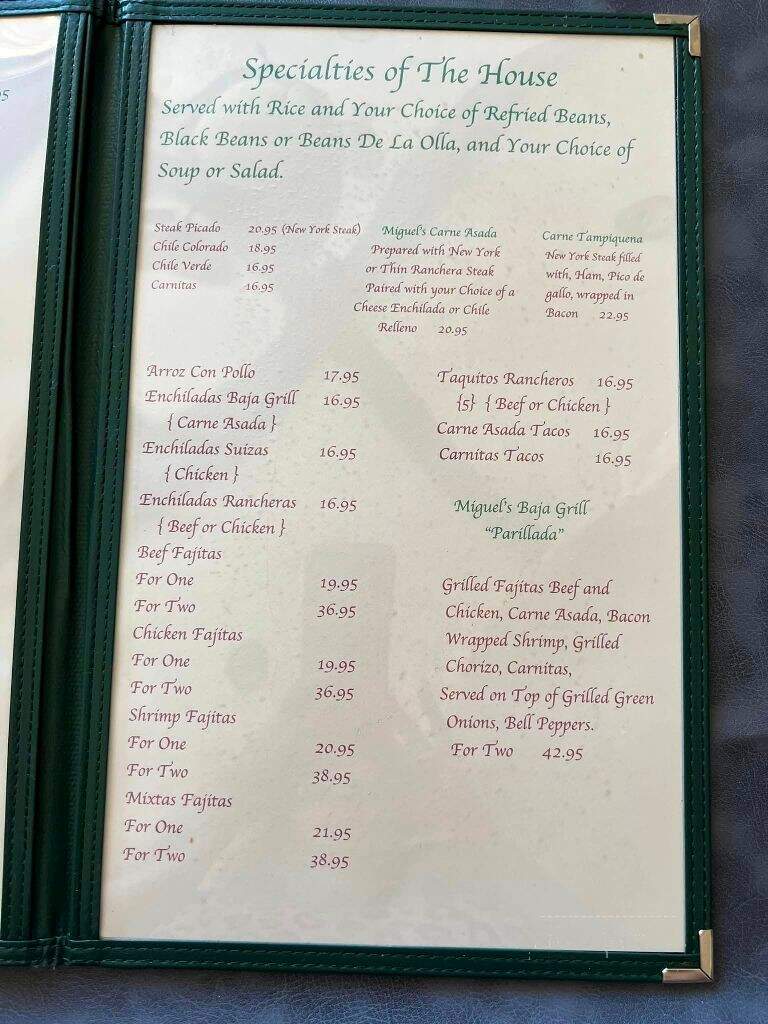 Specialties of The House
Served with Rice and Your Choice of Refried Beans,
Black Beans or Beans De La Olla, and Your Choice of
Soup or Salad.
Steak Picado 20.95 (New York Steak)
Chile Colorado 18.95
Chile Verde 16.95
Carnitas 16.95
Miguel's Carne Asada
Prepared with New York
or Thin Ranchera Steak
Paired with your Choice of a
Cheese Enchilada or Chile
Relleno 20.95
Carne Tampiquena
New York Steak filled
with, Ham, Pico de
gallo, wrapped in
Bacon 22.95
Arroz Con Pollo 17.95
Enchiladas Baja Grill 16.95
{ Carne Asada }
Enchiladas Suizas 16.95
{ Chicken }
Enchiladas Rancheras 16.95
{ Beef or Chicken }
Beef Fajitas
For One 19.95
For Two 36.95
Chicken Fajitas
For One 19.95
For Two 36.95
Shrimp Fajitas
For One 20.95
For Two 38.95
Mixtas Fajitas
For One 21.95
For Two 38.95
Taquitos Rancheros 16.95
{5} { Beef or Chicken }
Carne Asada Tacos 16.95
Carnitas Tacos 16.95
Miguel's Baja Grill
"Parillada"
Grilled Fajitas Beef and
Chicken, Carne Asada, Bacon
Wrapped Shrimp, Grilled
Chorizo, Carnitas,
Served on Top of Grilled Green
Onions, Bell Peppers.
For Two 42.95